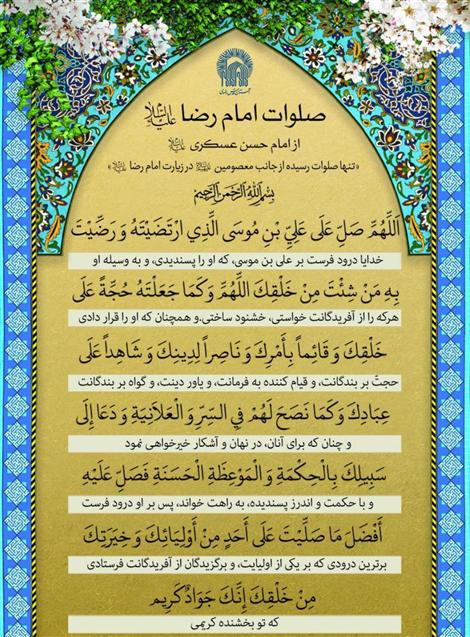 آستان قدس رضوی
صلوات امام رضا علیه‌السلام
از امام حسن عسکری علیه‌السلام
«تنها صلوات رسیده از جانب معصومین علیهم‌السلام در زیارت امام رضا علیه‌السلام»
بِسْمِ اللهِ الرَّحْمنِ الرَّحیمِ
اَللّهُمَّ صَلِّ عَلَى عَلِيِّ بْنِ مُوسَى الَّذِي ارْتَضَيْتَهُ وَ رَضَّيْتَ
خدایا درود فرست بر علی بن موسی، که او را پسندیدی، و به وسیله او
بِهِ مَنْ شِئْتَ مِنْ خَلْقِكَ اللَّهُمَّ وَكَمَا جَعَلْتَهُ حُجَّةً عَلَى
هرکه را از آفریدگانت خواستی، خشنود ساختی.و همچنان که او را قرار دادی
خَلْقِكَ وَ قَائِماً بِأَمْرِكَ وَ نَاصِراً لِدِينِكَ وَ شَاهِداً عَلَى
حجتّ بر بندگانت، و قیام کننده به فرمانت، و یاور دینت، و گواه بر بندگانت
عِبَادِكَ وَ كَمَا نَصَحَ لَهُمْ فِي السِّرِّ وَ الْعَلَانِيَةِ وَ دَعَا إِلَى
و چنان که برای آنان، در نهان و آشکار خیرخواهی نمود
سَبِيلِكَ بِالْحِكْمَةِ وَ الْمَوْعِظَةِ الْحَسَنَةِ فَصَلِّ عَلَيْهِ
و با حکمت و اندرز پسندیده، به راهت خواند، پس بر او درود فرست
أَفْضَلَ مَا صَلَّيْتَ عَلَى أَحَدٍ مِنْ أَوْلِيَائِكَ وَ خِيَرَتِكَ
برترین درودی که بر یکی از اولیایت، و برگزیدگان از آفریدگانت فرستادی
مِنْ خَلْقِكَ إِنَّكَ جَوَادٌ كَرِيم
که تو بخشنده کریمی